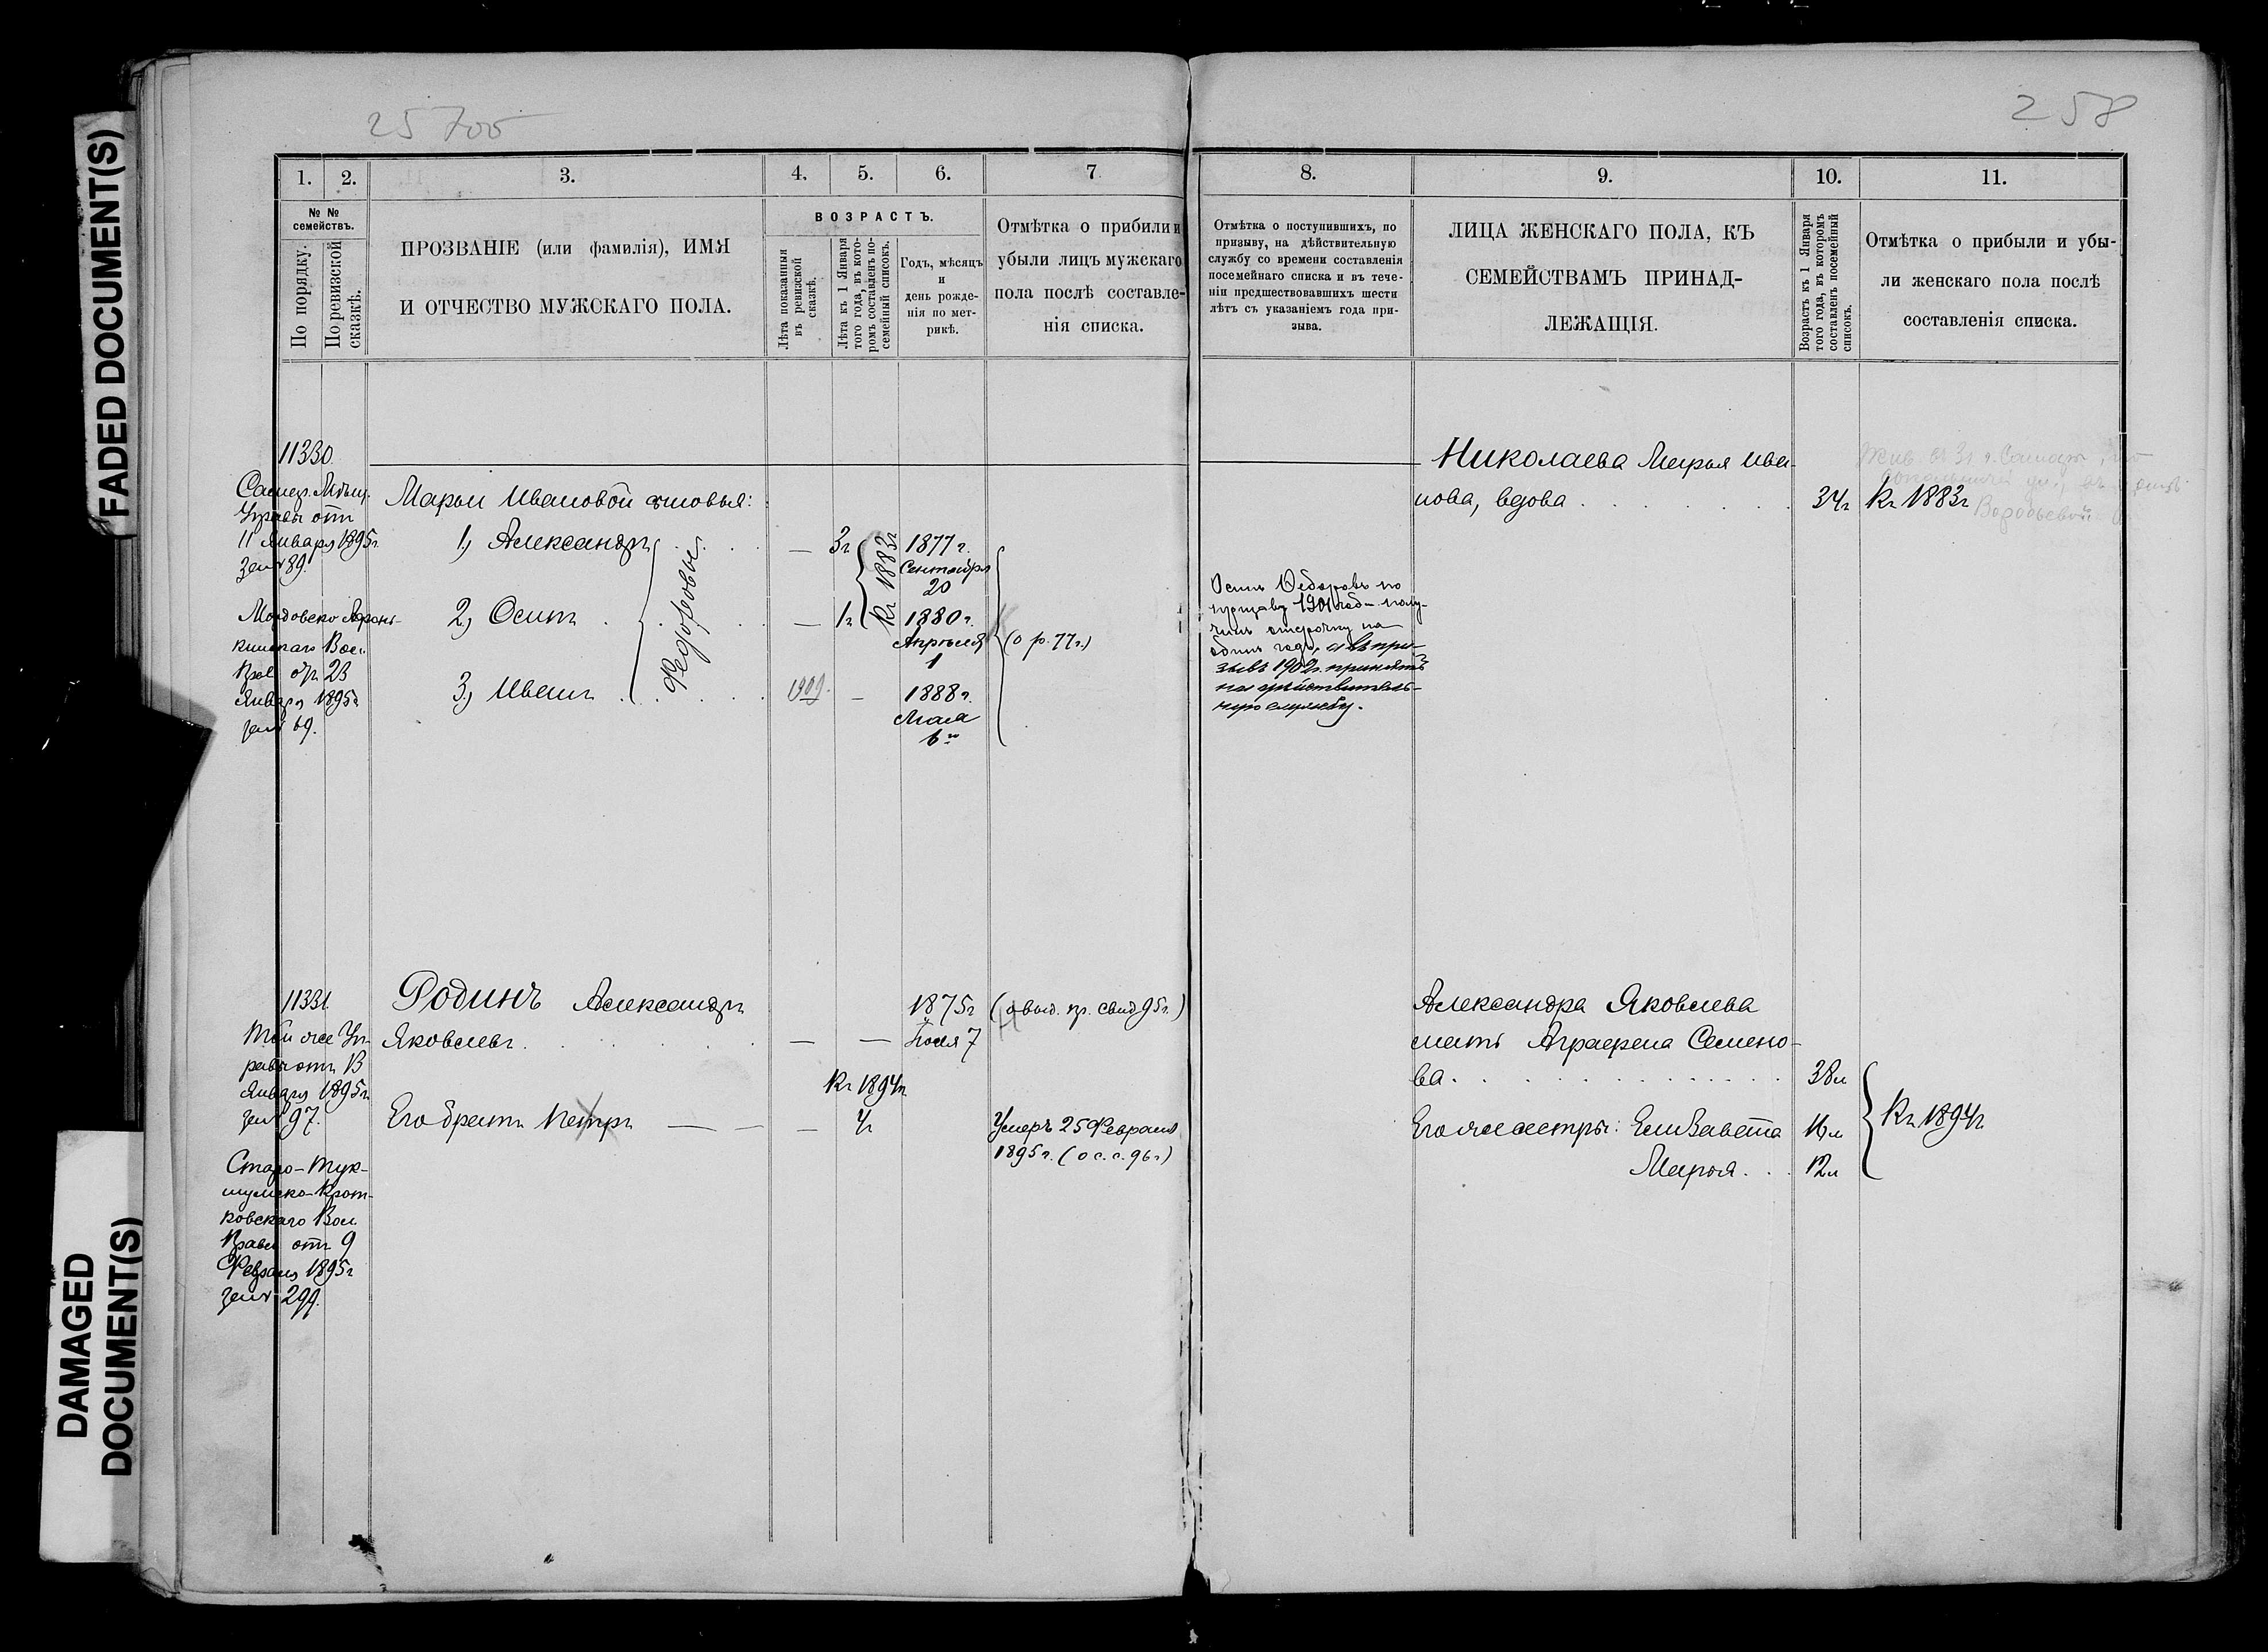 FADED DOCUMENT(S)
DAMAGED
DOCUMENT(S)
258
1.
2.
3.
4.
5.
6.
7
8.
9.
10.
11.
№ №
семействъ.
По порядку.
По ревизской
сказкѣ.
ПРОЗВАНІЕ (или фамилія), ИМЯ
И ОТЧЕСТВО МУЖСКАГО ПОЛА.
ВОЗРАСТЪ.
Лѣта показанныя
въ ревизской
сказкѣ.
Лѣта къ 1 Января
того года, въ кото-
ромъ составленъ по-
семейный списокъ.
Годъ, мѣсяцъ
и
день рожде-
нія по мет-
рикѣ.
Отмѣтка о прибыли и
убыли лицъ мужскаго
пола послѣ составле-
нія списка.
Отмѣтка о поступившихъ, по
призыву, на дѣйствительную
службу со времени составленія
посемейнаго списка и въ тече-
ніи предшествовавшихъ шести
лѣтъ съ указаніемъ года при-
зыва.
ЛИЦА ЖЕНСКАГО ПОЛА, КЪ
СЕМЕЙСТВАМЪ ПРИНАД-
ЛЕЖАЩІЯ.
Возрастъ къ 1 Января
того года, въ которомъ
составленъ посемейный
списокъ.
Отмѣтка о прибыли и убы-
ли женскаго пола послѣ
составленія списка.
11330
Самар. Мѣщ.
Управы отъ
11 Января 1895г.
за № 89.
Вол.
23
Января 1895г
за № 69.
Марьи Ивановой сыновья:
1, Александръ
2, Осипъ
3, Иванъ
Федоровы
1909.
3г
1г
Къ 1883г
1877 г.
Сентября
20
1880 г.
Апрѣля
1
1888 г.
Мая
6го
(о р. 77г.)
Осипъ Федоровъ по
призыву 1901 год- полу-
чилъ отсрочку на
одинъ годъ, а въ при-
зывъ 1902г. принятъ
на дѣйствитель-
ную службу.
Николаева Марья Ива-
нова, вдова
34г
Къ 1883г
Воробьевой
11331
Той же Уп-
равы отъ 13
Января 1895г.
за № 97.
ковскаго Вол.
Правл отъ 9
Февраля 1895г
за № 299.
Родинъ Александръ
Яковлевъ
Его братъ Петръ
Къ 1894г
4г
1875г
Іюля 7
(о выд. пр. свид 95г.)
Умеръ 25 Февраля
1895г. (о с. с. 96г)
Александра Яковлева
мать Аграфена Семено-
ва
38л
Его же сестры: Елизавета
16л
Марья
12л
Къ 1894г.